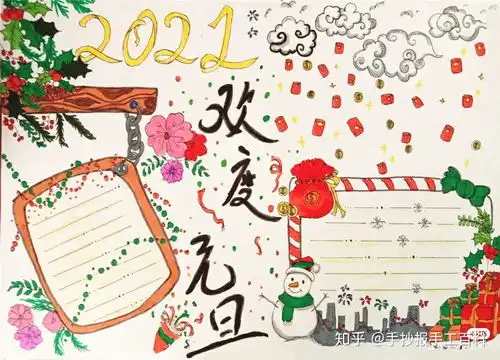 2021
欢度
元旦
知乎 @手抄报手工百科